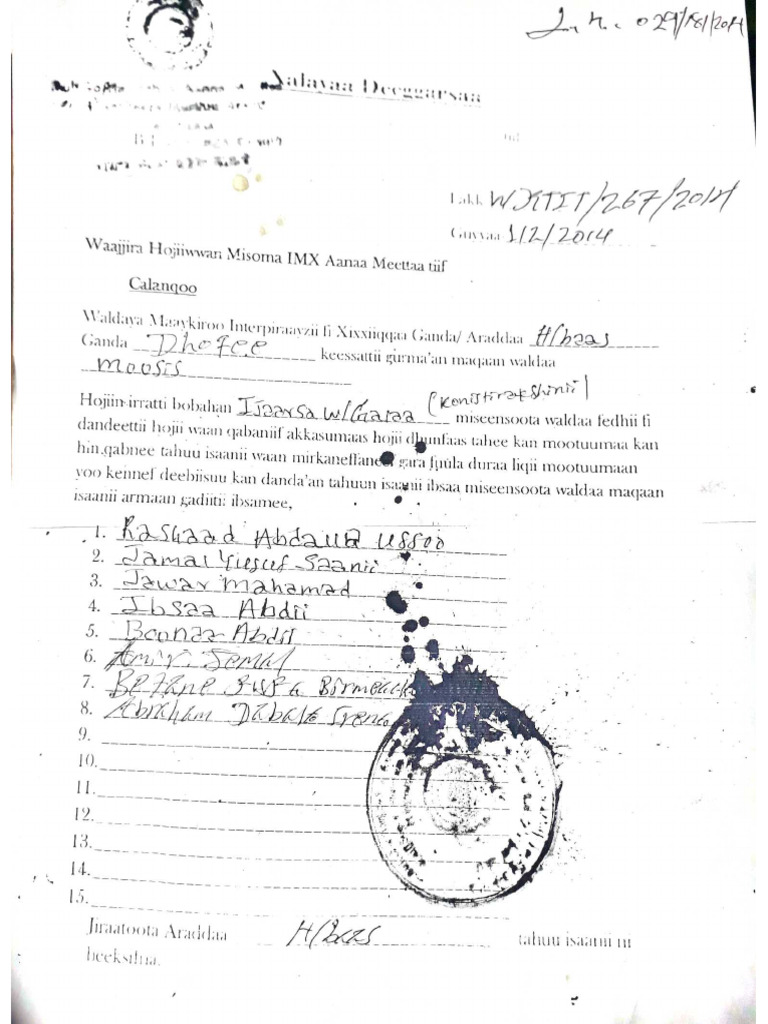 029/18/2014
Xalayaa Deeggarsaa
Lakk WXTIT/267/2014
Guyyaa 1/2/2014
Waajjira Hojiiwwan Misoma IMX Aanaa Meettaa tiif
Calanqoo
Waldaya Maaykiroo Interpiraayzii fi Xixxiiqqaa Ganda/ Araddaa H/baas
Ganda Dhofee keessattii gurma'an maqaan waldaa
Moosis
Hojiin irratti bobahan Ijaarsa w/Garaa (Konistirakshinii) miseensoota waldaa fedhii fi
dandeettii hojii waan qabaniif akkasumaas hojii dhunfaas tahee kan mootuumaa kan
hin.qabnee tahuu isaanii waan mirkaneffaneef gara fuula duraa liqii mootuumaan
yoo kennef deebiisuu kan danda'an tahuun isaanii ibsaa miseensoota waldaa maqaan
isaanii armaan gadiiti: ibsamee,
1. Rashaad Abdalla Ussoo
2. Jamal Yusuf Saanii
3. Jawar Mahamad
4. Ibsaa Abdii
5. Boonaa Abdii
6. Amir Jemal
7. Bezane
8. Abraham Dabale
9.
10.
11.
12.
13.
14.
15.
Jiraatoota Araddaa H/baas tahuu isaanii ni
beeksifna.